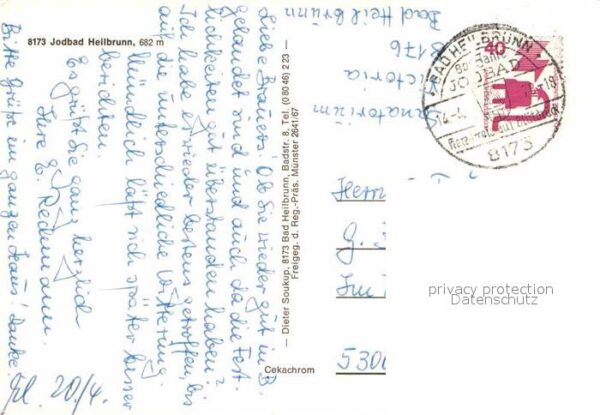 8173 Jodbad Heilbrunn, 682 m
Liebe Brauers! Ob Sie wieder gut in B.
gelandet sind und auch da die Fest-
lichkeiten gut überstanden haben?
Ich habe es wieder bestens getroffen, bis
auf die unterschiedliche Witterung.
Mündlich läßt sich später besser
berichten.
Es grüßt Sie ganz herzlich
Ihre E. Rechmann.
Bitte Grüße im ganzen Haus! Danke
20/4.
— Dieter Soukup, 8173 Bad Heilbrunn, Badstr. 8, Tel. (0 80 46) 2 23 —
Freigeg. d. Reg.-Präs. Münster 2641/67
Cekachrom
Sanatorium
Viktoria
8176
Bad Heilbrunn
40
BAD HEILBRUNN
JODBAD
8173
Herrn
G.
Im
5300
privacy protection
Datenschutz